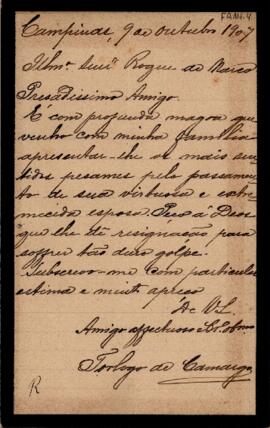 FAM.4
Campinas, 9 de Outubro 1907
Illmo. Snr. Roque de Marco
Presadissimo Amigo.
É com profunda magoa que
venho com minha familia
apresentar-lhe os mais sen-
tidos pesames pelo passamen-
to de sua virtuosa e extre-
mecida esposa. Peço á Deos
que lhe dê resignação para
soffrer tão duro golpe.
Subscrevo-me com particular
estima e muito apreço
De V.S.
Amigo affectuoso
de Camargo
R